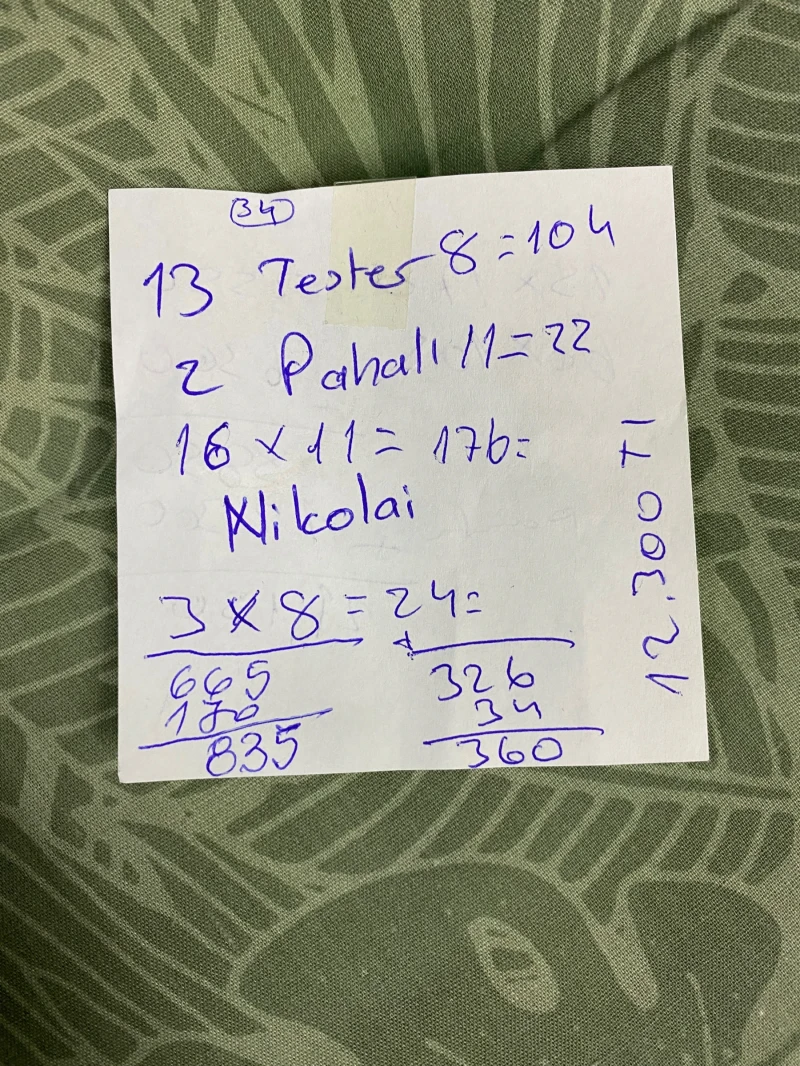 34
13 Tester 8=104
2 Pahalı 11=22
16 x 11 = 176=
Nikolai
3 x 8 = 24=
+
665
170
835
326
34
360
12.300 Tl